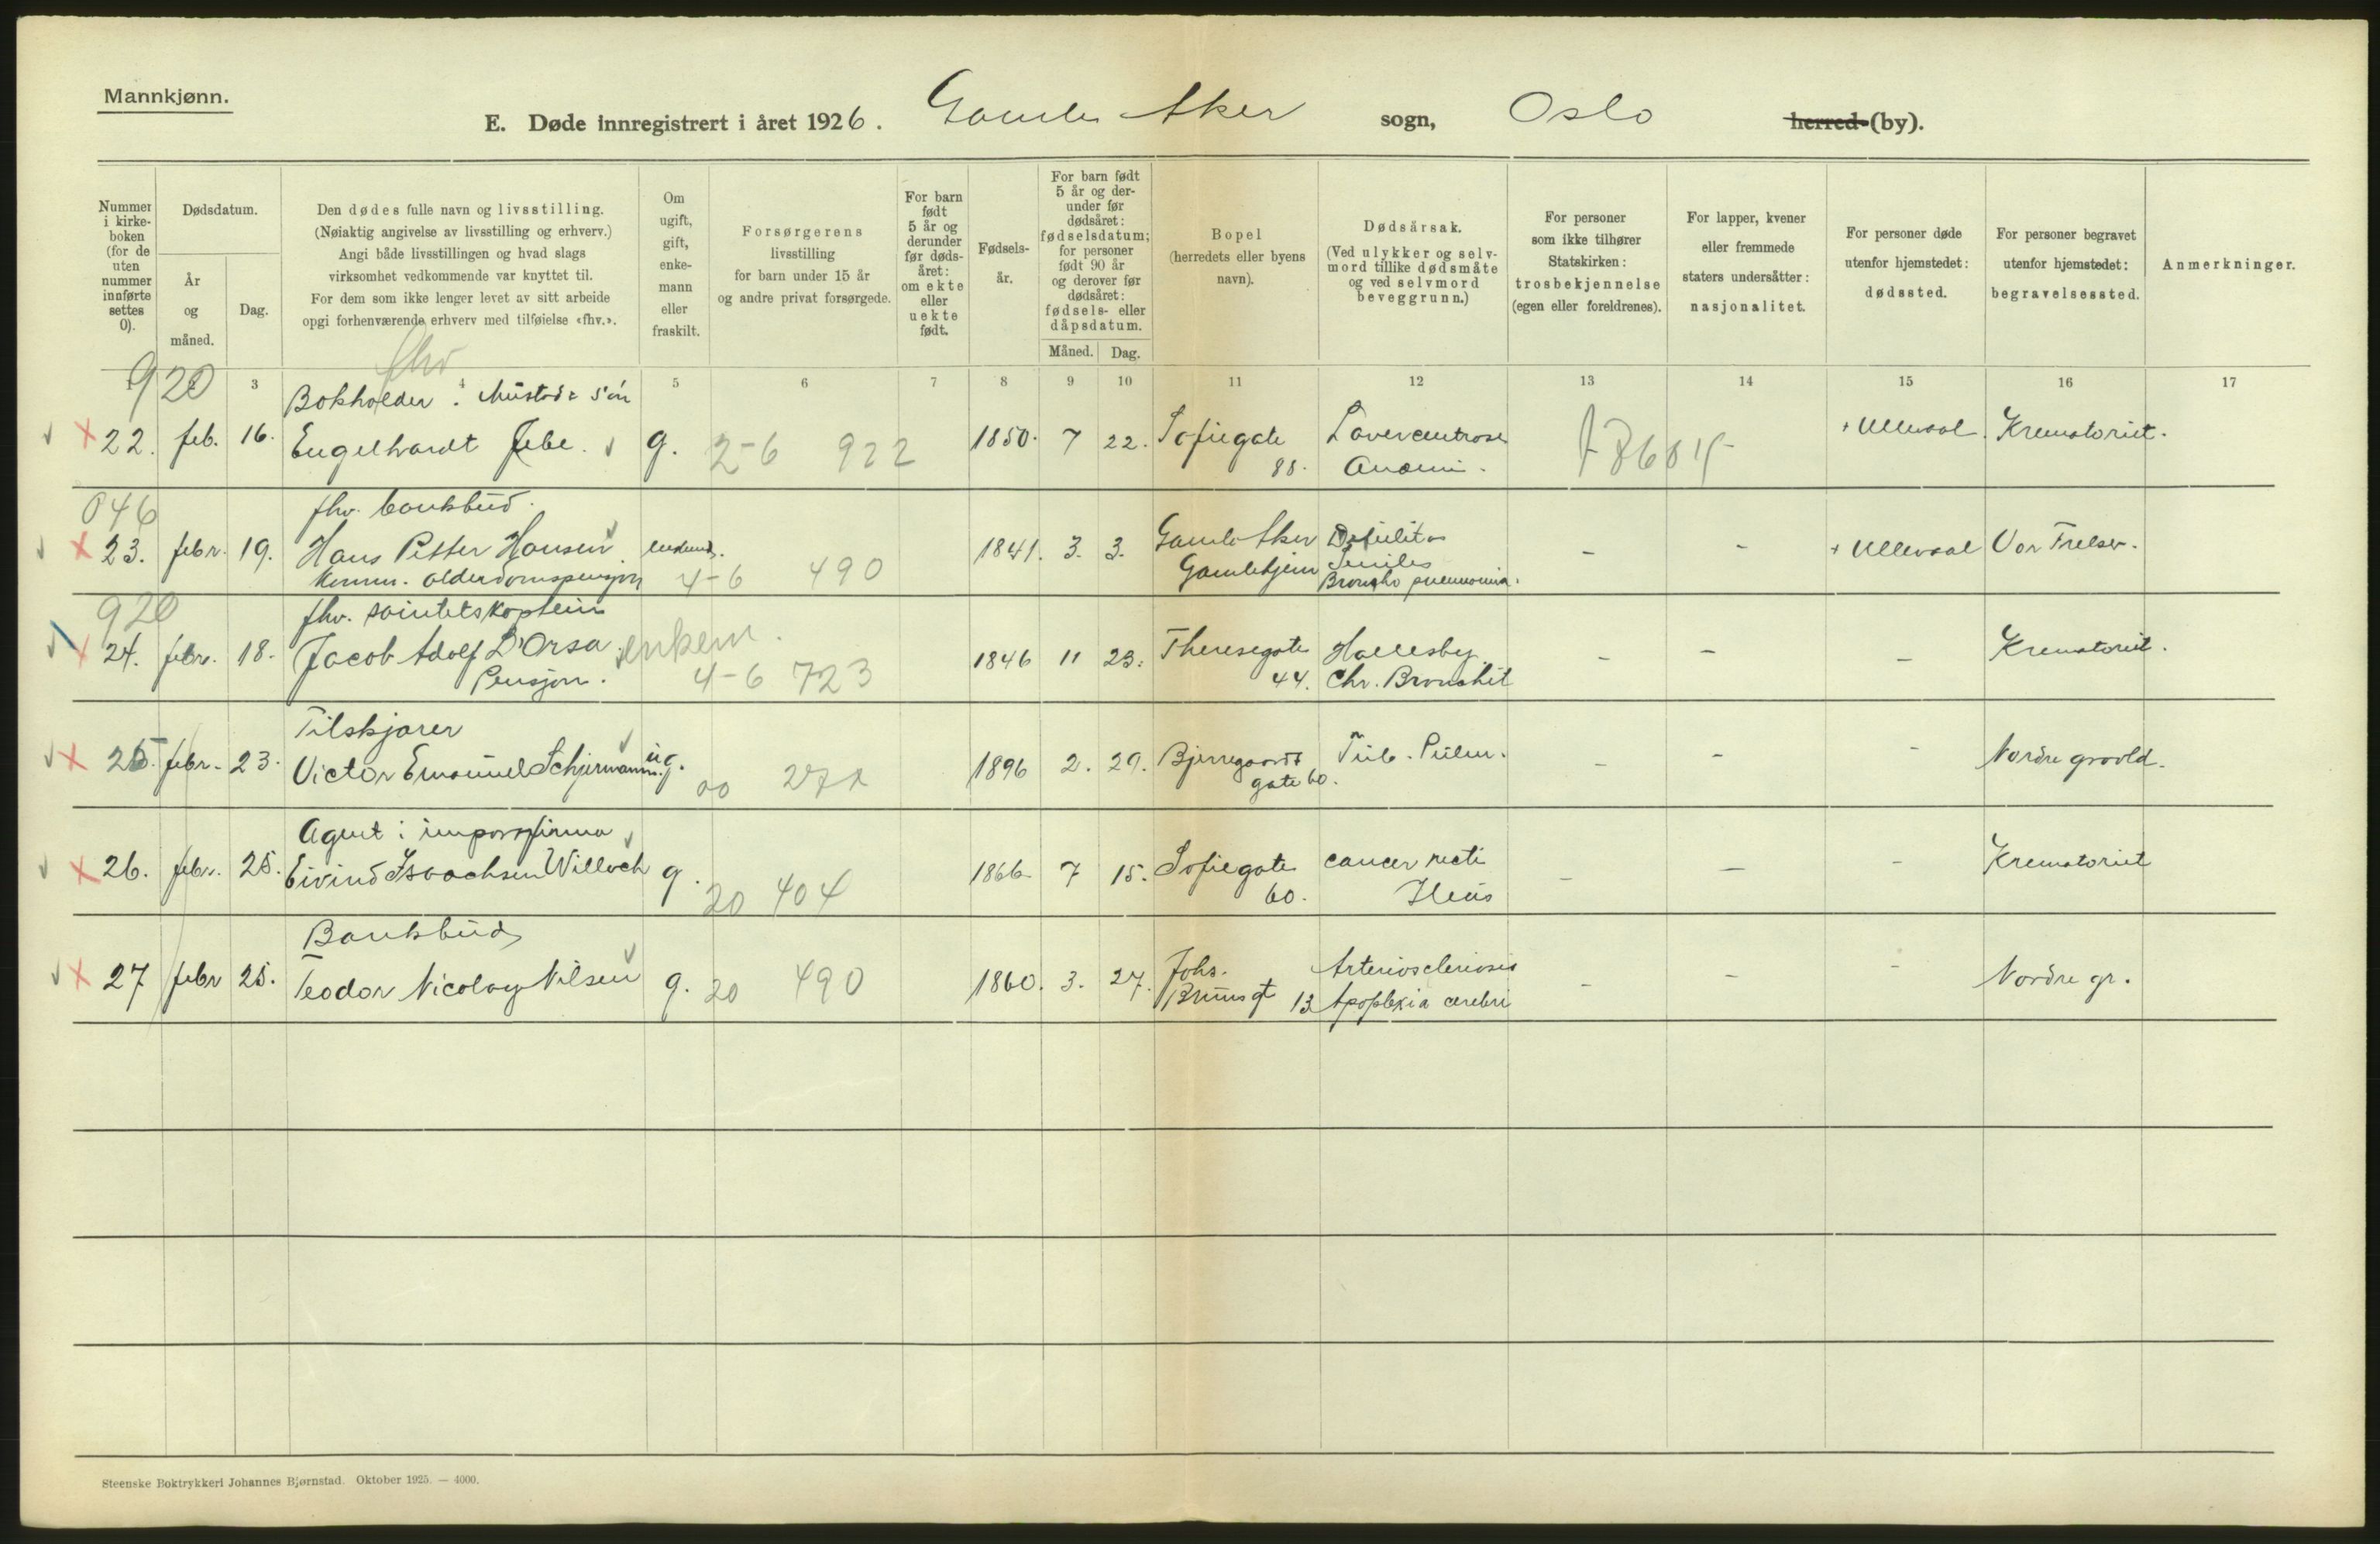 Mannkjønn.
E. Døde innregistrert i året 1926. Gamle Aker sogn, Oslo herred (by).
Nummer i kirkeboken (for de uten nummer innførte settes 0).
Dødsdatum.
År og måned.
Dag.
Den dødes fulle navn og livsstilling.
(Nøiaktig angivelse av livsstilling og erhverv.)
Angi både livsstillingen og hvad slags
virksomhet vedkommende var knyttet til.
For dem som ikke lenger levet av sitt arbeide
opgi forhenværende erhverv med tilføielse «fhv.».
Om ugift, gift, enkemann eller fraskilt.
Forsørgerens livsstilling for barn under 15 år og andre privat forsørgede.
For barn født 5 år og derunder før dødsåret: om ekte eller uekte født.
Fødselsår.
For barn født 5 år og derunder før dødsåret: fødselsdatum; for personer født 90 år og derover før dødsåret: fødsels- eller dåpsdatum.
Måned. Dag.
Bopel (herredets eller byens navn).
Dødsårsak. (Ved ulykker og selvmord tillike dødsmåte og ved selvmord beveggrunn.)
For personer som ikke tilhører Statskirken: trosbekjennelse (egen eller foreldrenes).
For lapper, kvener eller fremmede staters undersåtter: nasjonalitet.
For personer døde utenfor hjemstedet: dødssted.
For personer begravet utenfor hjemstedet: begravelsessted.
Anmerkninger.
3 4 5 6 7 8 9 10 11 12 13 14 15 16 17
920 fhv
Bokholder. Mustad & Søn
22. feb. 16. Engelhardt Jebe. g. 2-6 922 1850. 7 22. Sofiegate 88. Levercirrose Anæmi. + Ullevaal. Krematoriet.
046
fhv. bankbud.
23. febr. 19. Hans Petter Hansen enkem. 4-6 490 1841. 3. 3. Gamle Aker Gamlehjem Debilitas Senilis Broncho pneumonia. - - + Ullevaal Vor Frelser.
komm. alderdomspensjon
920
fhv. kaptein
24. febr. 18. Jacob Adolf D'Orsa. enkem. 4-6 723 1846 11 23. Theresegate 44. Chr. Bronchit - - - Krematoriet.
Pensjon.
Tilskjærer
25. febr. 23. Victor Emanuel Schjermann. ug. 00 272 1896 2. 29. Bjerregaards gate 60. Tub. Pulm. - - - Nordre gravld.
Agent i importfirma
26. febr. 25. Eivind Isaachsen Willoch g. 20 404 1866. 7 15. Sofiegate 60. cancer recti Ileus - - - Krematoriet
Bankbud
27 febr 25. Teodor Nicolay Nilsen g. 20 490 1860. 3. 27. Johs. Bruns gt 13 Arteriosclerosis Apoplexia cerebri - - - Nordre gr.
Steenske Boktrykkeri Johannes Bjørnstad. Oktober 1925. — 4000.